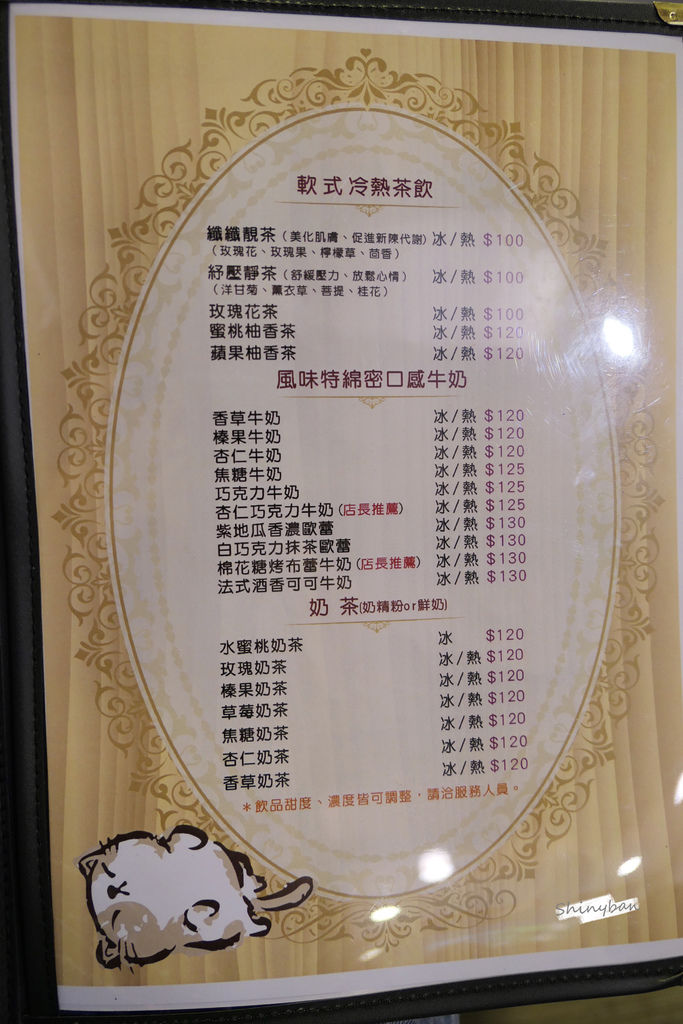 軟式冷熱茶飲
纖纖靚茶(美化肌膚、促進新陳代謝) 冰/熱 $100
(玫瑰花、玫瑰果、檸檬草、茴香)
紓壓靜茶(舒緩壓力、放鬆心情) 冰/熱 $100
(洋甘菊、薰衣草、菩提、桂花)
玫瑰花茶 冰/熱 $100
蜜桃柚香茶 冰/熱 $120
蘋果柚香茶 冰/熱 $120
風味特綿密口感牛奶
香草牛奶 冰/熱 $120
榛果牛奶 冰/熱 $120
杏仁牛奶 冰/熱 $120
焦糖牛奶 冰/熱 $125
巧克力牛奶 冰/熱 $125
杏仁巧克力牛奶(店長推薦) 冰/熱 $125
紫地瓜香濃歐蕾 冰/熱 $130
白巧克力抹茶歐蕾 冰/熱 $130
棉花糖烤布蕾牛奶(店長推薦) 冰/熱 $130
法式酒香可可牛奶 冰/熱 $130
奶 茶(奶精粉or鮮奶)
水蜜桃奶茶 冰 $120
玫瑰奶茶 冰/熱 $120
榛果奶茶 冰/熱 $120
草莓奶茶 冰/熱 $120
焦糖奶茶 冰/熱 $120
杏仁奶茶 冰/熱 $120
香草奶茶 冰/熱 $120
*飲品甜度、濃度皆可調整,請洽服務人員。
Shinyban